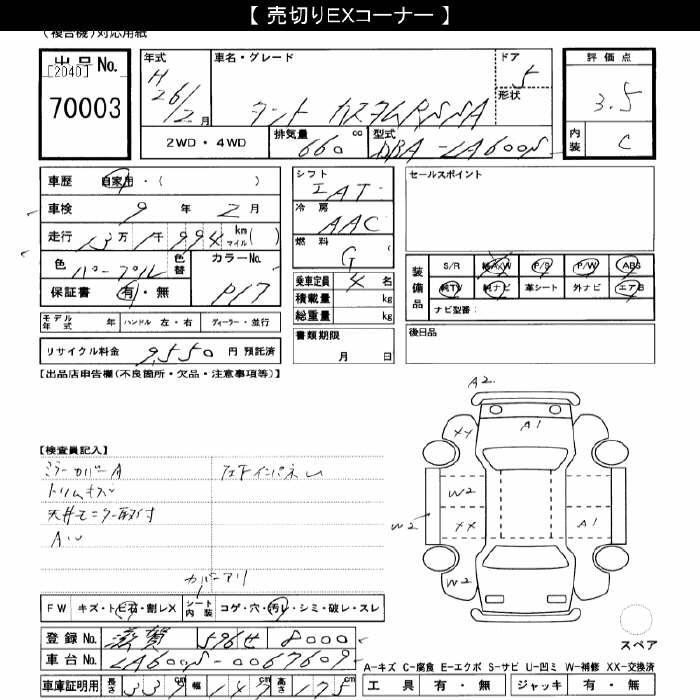 【 売切りEXコーナー 】
(複合機)対応用紙
出品No.
[2040]
70003
年式
H
26/2月
車名・グレード
タント カスタムRSSA
ドア
5
形状
評価点
3.5
内装
C
2WD・4WD
排気量
660 cc
型式
DBA-LA600S
車歴 自家用・( )
車検 9年 2月
走行 13万 1千 994 km マイル( )
色 パープル
色替
カラーNo.
P17
保証書 有・無
シフト
IAT
冷房
AAC
燃料
G
乗車定員 4名
積載量 kg
総重量 kg
書類期限
月 日
セールスポイント
装備品
S/R 純A/W P/S P/W ABS
純TV 純ナビ 革シート 外ナビ エアB
ナビ型番:
後日品
モデル年式 年 ハンドル 左・右 ディーラー・並行
リサイクル料金 9,550 円 預託済
【出品店申告欄(不良箇所・欠品・注意事項等)】
【検査員記入】
ミラーカバーA
トリムキズ
天井モニター取付
AW
A2
A1
XX
W2
XX
W2
W2
A1
カバーアリ
FW キズ・トビ石・割レX
シート内装 コゲ・穴・汚レ・シミ・破レ・スレ
スペア
登録No. 滋賀 596せ 8000
車台No. LA600S-0067609
車庫証明用 長さ 339cm 幅 147cm 高さ 175cm
A-キズ C-腐食 E-エクボ S-サビ U-凹ミ W-補修 XX-交換済
工具 有・無 ジャッキ 有・無